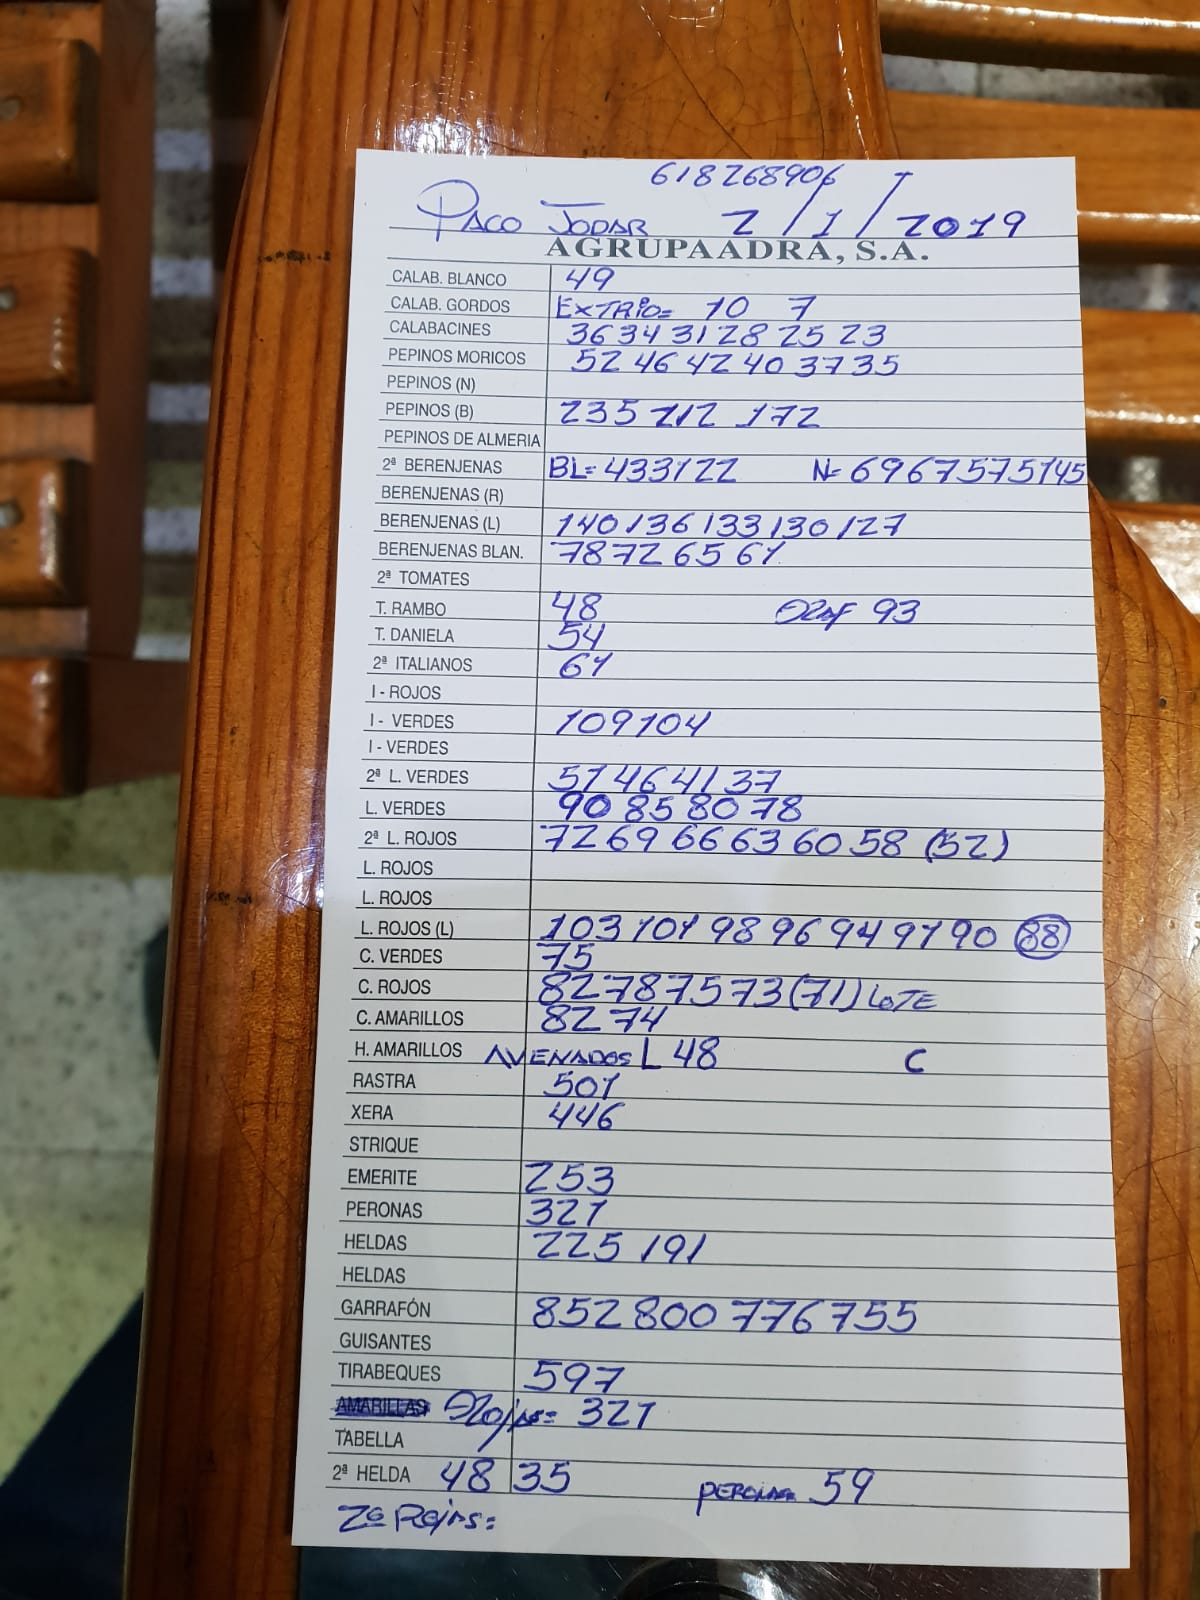 618268906
PACO JODAR 2/1/2019
AGRUPAADRA, S.A.
CALAB. BLANCO 49
CALAB. GORDOS EXTRIO= 10 7
CALABACINES 36 34 31 28 25 23
PEPINOS MORICOS 52 46 42 40 37 35
PEPINOS (N)
PEPINOS (B) 235 212 172
PEPINOS DE ALMERIA
2ª BERENJENAS BL= 43 31 22 N= 69 67 57 51 45
BERENJENAS (R)
BERENJENAS (L) 140 136 133 130 127
BERENJENAS BLAN. 78 72 65 61
2ª TOMATES
T. RAMBO 48 93
T. DANIELA 54
2ª ITALIANOS 61
I - ROJOS
I - VERDES 109 104
I - VERDES
2ª L. VERDES 51 46 41 37
L. VERDES 90 85 80 78
2ª L. ROJOS 72 69 66 63 60 58 (52)
L. ROJOS
L. ROJOS
L. ROJOS (L) 103 101 98 96 94 91 90 88
C. VERDES 75
C. ROJOS 82 78 75 73 (71) LOTE
C. AMARILLOS 82 74
H. AMARILLOS AVENADOS L 48 C
RASTRA 501
XERA 446
STRIQUE
EMERITE 253
PERONAS 321
HELDAS 225 191
HELDAS
GARRAFÓN 852 800 776 755
GUISANTES
TIRABEQUES 597
AMARILLAS = 321
TABELLA
2ª HELDA 48 35 PERONA= 59
2ª Rojas=